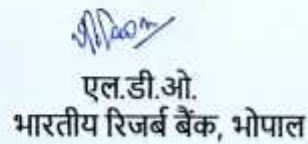 एल.डी.ओ.
भारतीय रिजर्ब बैंक, भोपाल